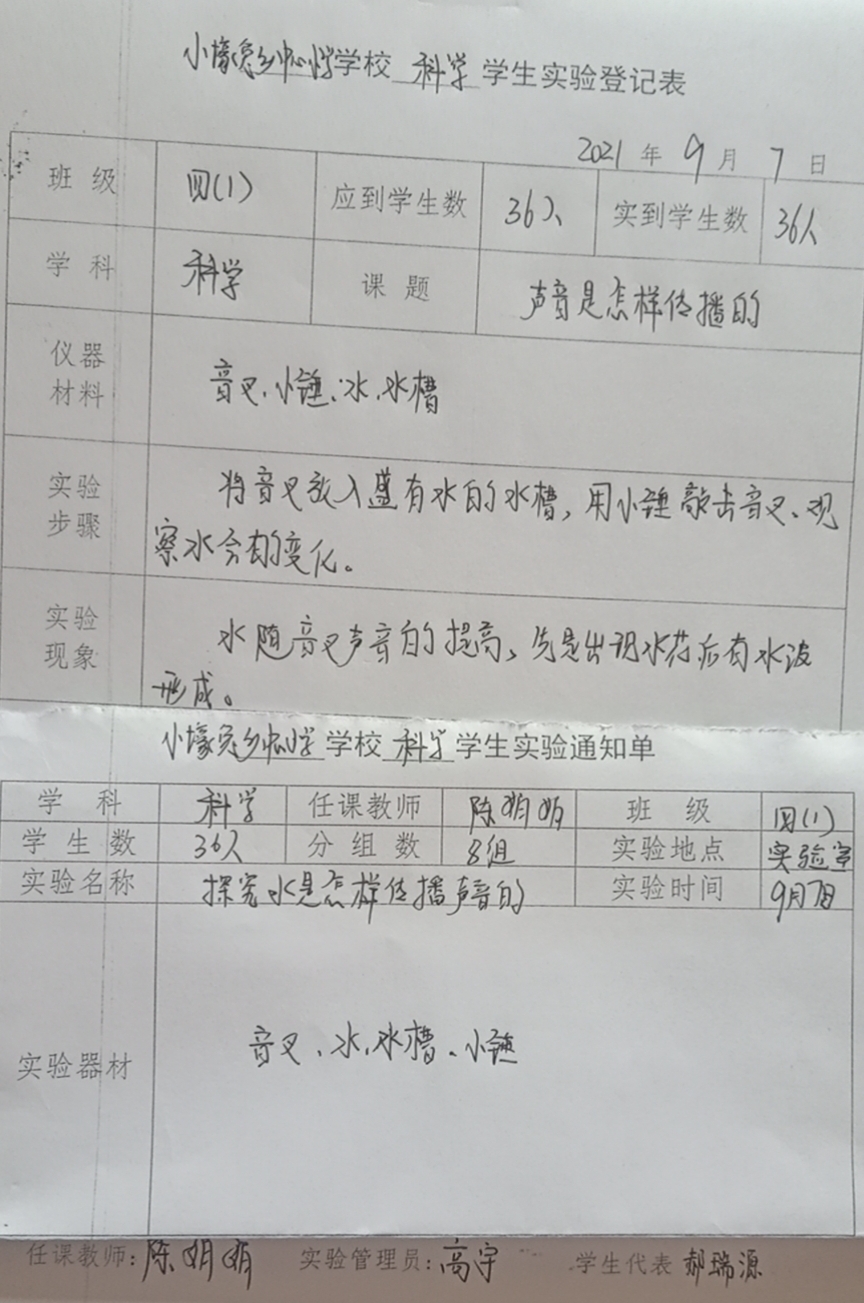 小壕兔乡中心小学学校 科学 学生实验登记表
2021 年 9 月 7 日
班 级 四(1) 应到学生数 36人 实到学生数 36人
学 科 科学 课 题 声音是怎样传播的
仪器
材料
音叉、小锤、水、水槽
实验
步骤
将音叉放入盛有水的水槽,用小锤敲击音叉、观
察水会有的变化。
实验
现象
水随音叉声音的提高,先是出现水花后有水波
形成。
小壕兔乡中心小学 学校 科学 学生实验通知单
学 科 科学 任课教师 陈娟娟 班 级 四(1)
学 生 数 36人 分 组 数 8组 实验地点 实验室
实验名称 探究水是怎样传播声音的 实验时间 9月7日
实验器材 音叉、水、水槽、小锤
任课教师:陈娟娟 实验管理员:高宇 学生代表 郝瑞源